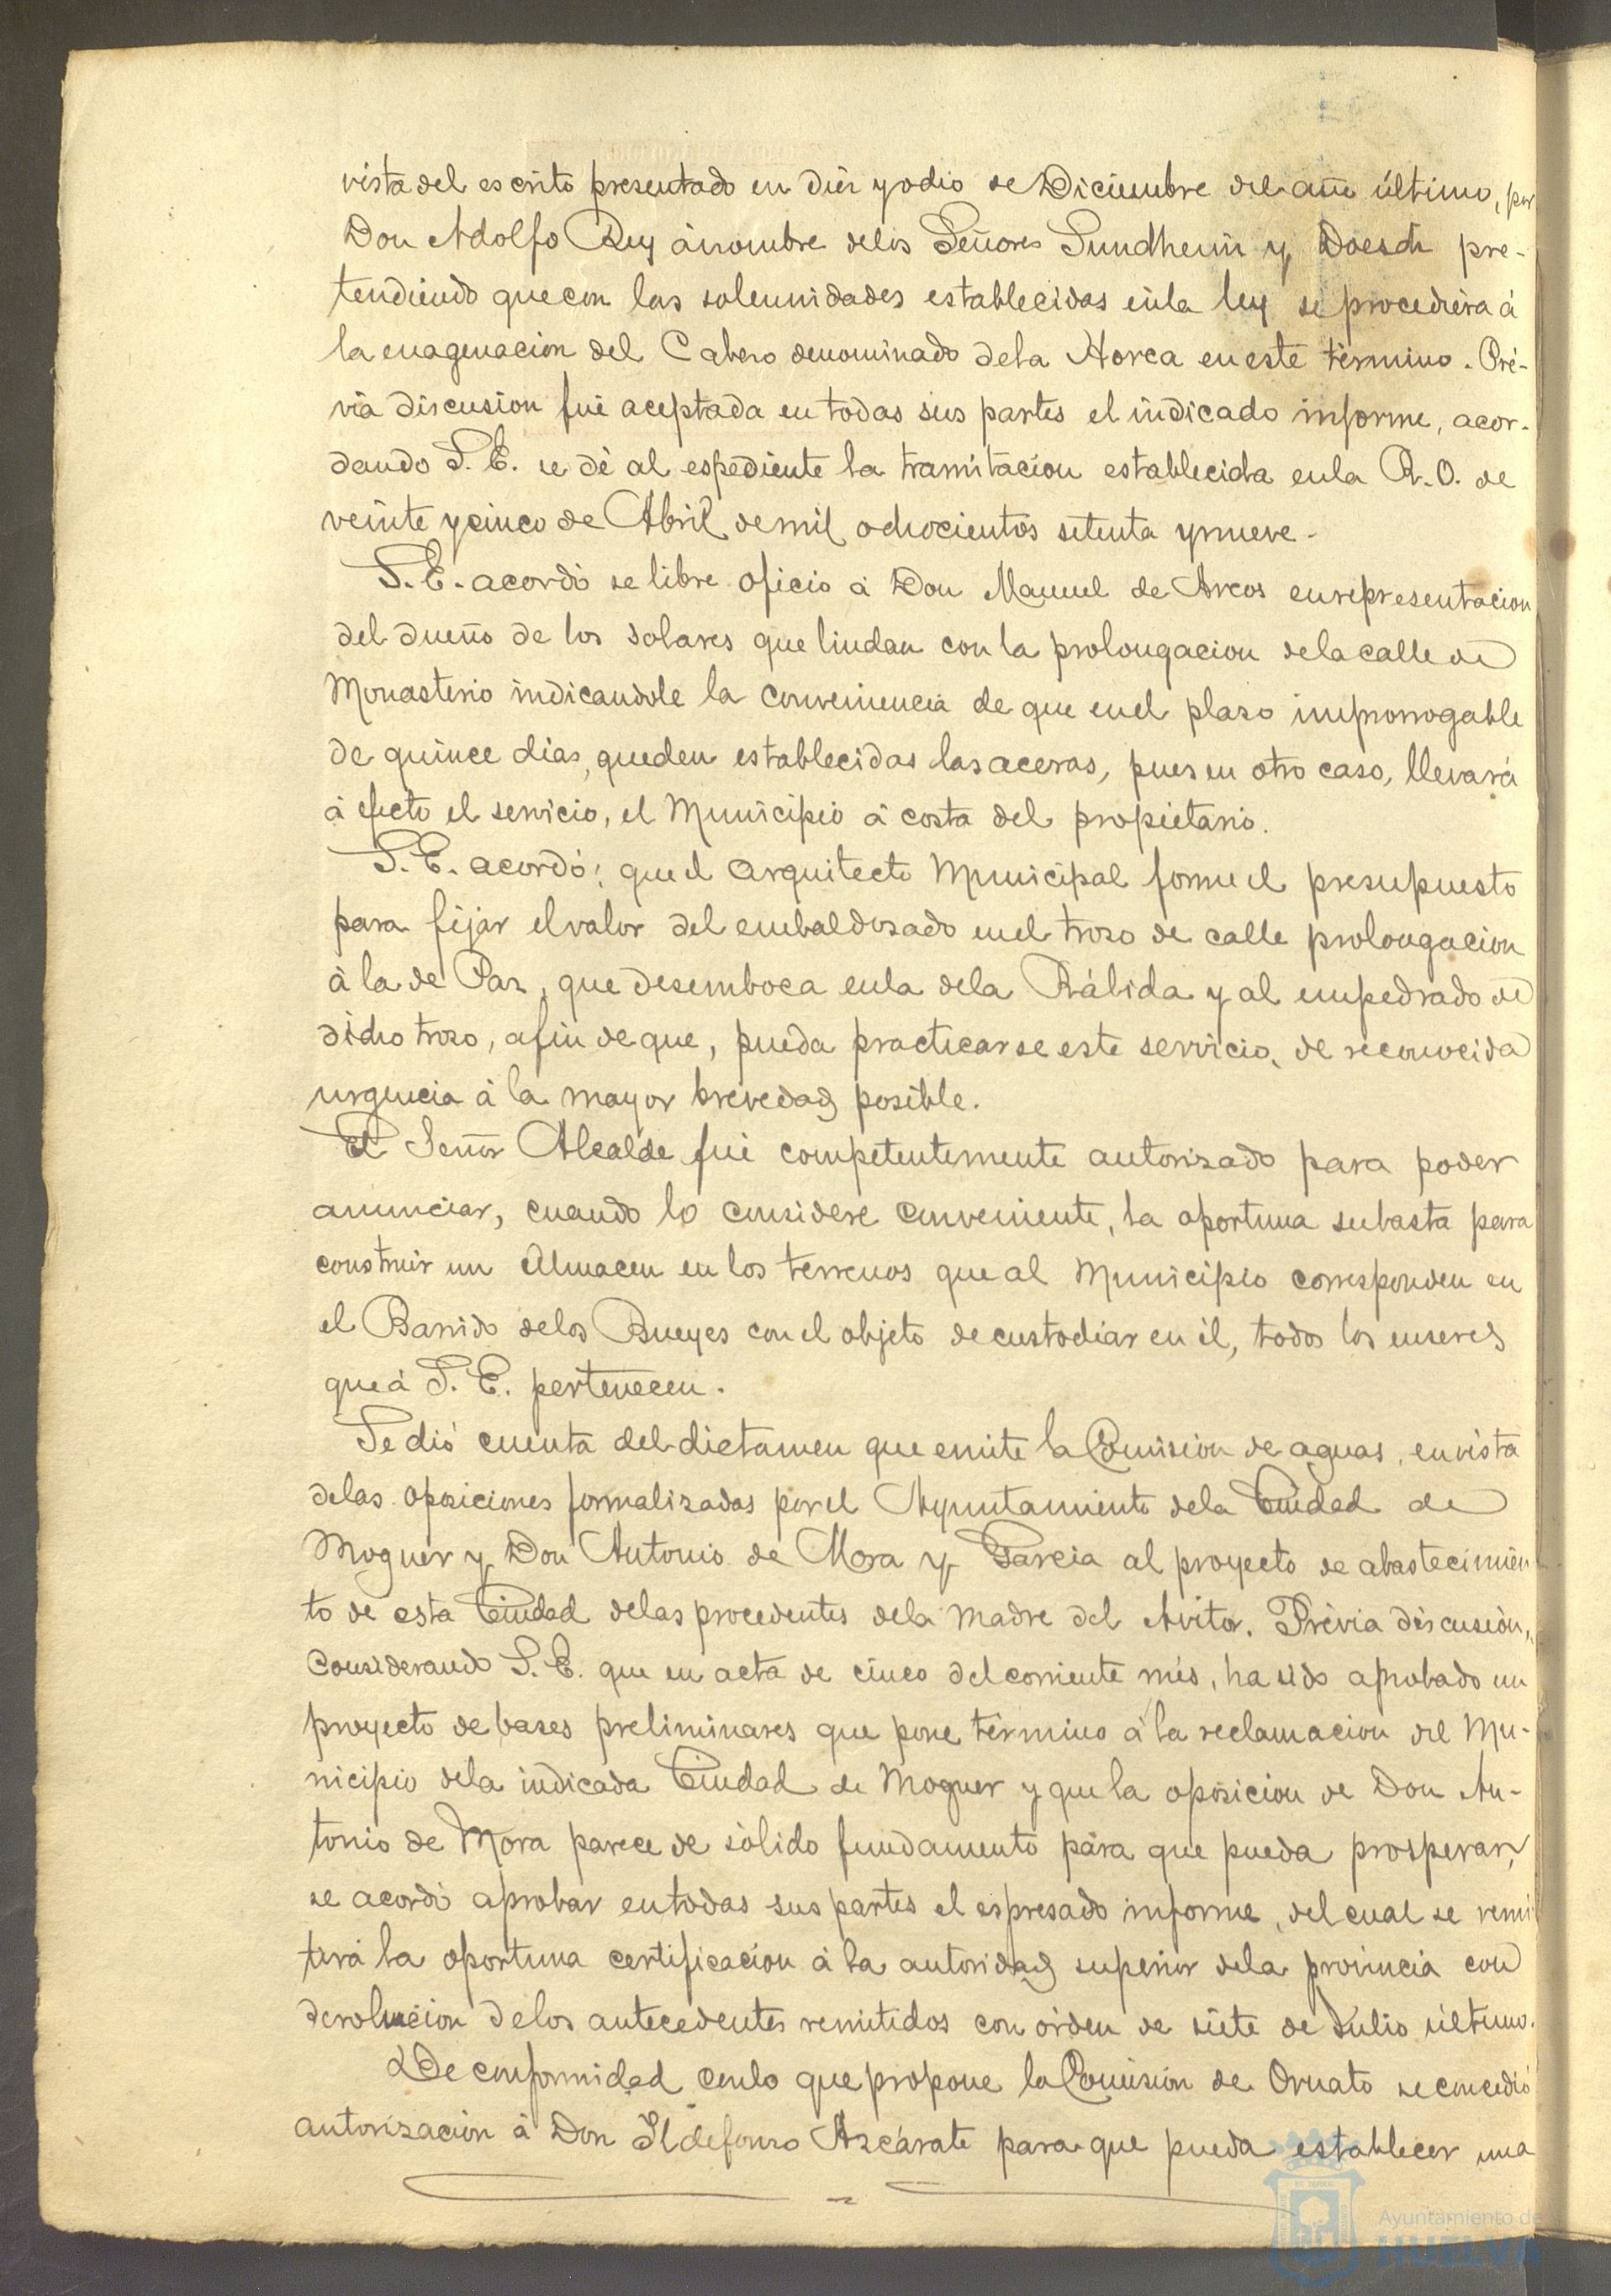 vista del escrito presentado en diez y ocho de Diciembre del año último, por
Don Adolfo Rey á nombre de los Señores Sundheim y Doesch pre-
tendiendo que con las solemnidades establecidas en la ley se procediera á
la enagenacion del Cabezo denominado de la Horca en este término. Pré-
via discusion fué aceptada en todas sus partes el indicado informe, acor-
dando S. E. se dé al espediente la tramitacion establecida en la R. O. de
veinte y cinco de Abril de mil ochocientos setenta y nueve.
S. E. acordó se libre oficio á Don Manuel de Arcos en representacion
del dueño de los solares que lindan con la prolongacion de la calle de
Monasterio indicandole la conveniencia de que en el plazo improrrogable
de quince dias, queden establecidas las aceras, pues en otro caso, llevará
á efecto el servicio, el Municipio á costa del propietario.
S. E. acordó: que el Arquitecto Municipal forme el presupuesto
para fijar el valor del embaldosado en el trozo de calle prolongacion
á la de Paz, que desemboca en la de la Rábida y al empedrado de
dicho trozo, afin de que, pueda practicarse este servicio, de reconocida
urgencia á la mayor brevedad posible.
El Señor Alcalde fué competentemente autorizado para poder
anunciar, cuando lo considere conveniente, la oportuna subasta para
construir un Almacen en los terrenos que al Municipio corresponden en
el Barrido de los Bueyes con el objeto de custodiar en él, todos los enseres
que á S. E. pertenecen.
Se dió cuenta del dictamen que emite la Comision de aguas, en vista
de las oposiciones formalizadas por el Ayuntamiento de la Ciudad de
Moguer y Don Antonio de Mora y Garcia al proyecto de abastecimien
to de esta Ciudad de las procedentes de la Madre del Avitor. Prévia discusion,
Considerando S. E. que en acta de cinco del corriente més, ha sido aprobado un
proyecto de bases preliminares que pone término á la reclamacion del Mu-
nicipio de la indicada Ciudad de Moguer y que la oposicion de Don An-
tonio de Mora parece de sólido fundamento para que pueda prosperar,
se acordó aprobar en todas sus partes el espresado informe, del cual se remi
tirá la oportuna certificacion á la autoridad superior de la provincia con
devolucion de los antecedentes remitidos con órden de siete de Julio último.
De conformidad con lo que propone la Comision de Ornato se concedió
autorizacion á Don Ildefonso Azcárate para que pueda establecer una
Ayuntamiento de
HUELVA